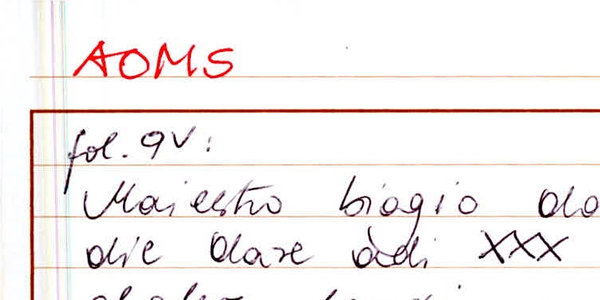 AOMS
fol. 9v:
Maiestro biagio da
die dare adi XXX